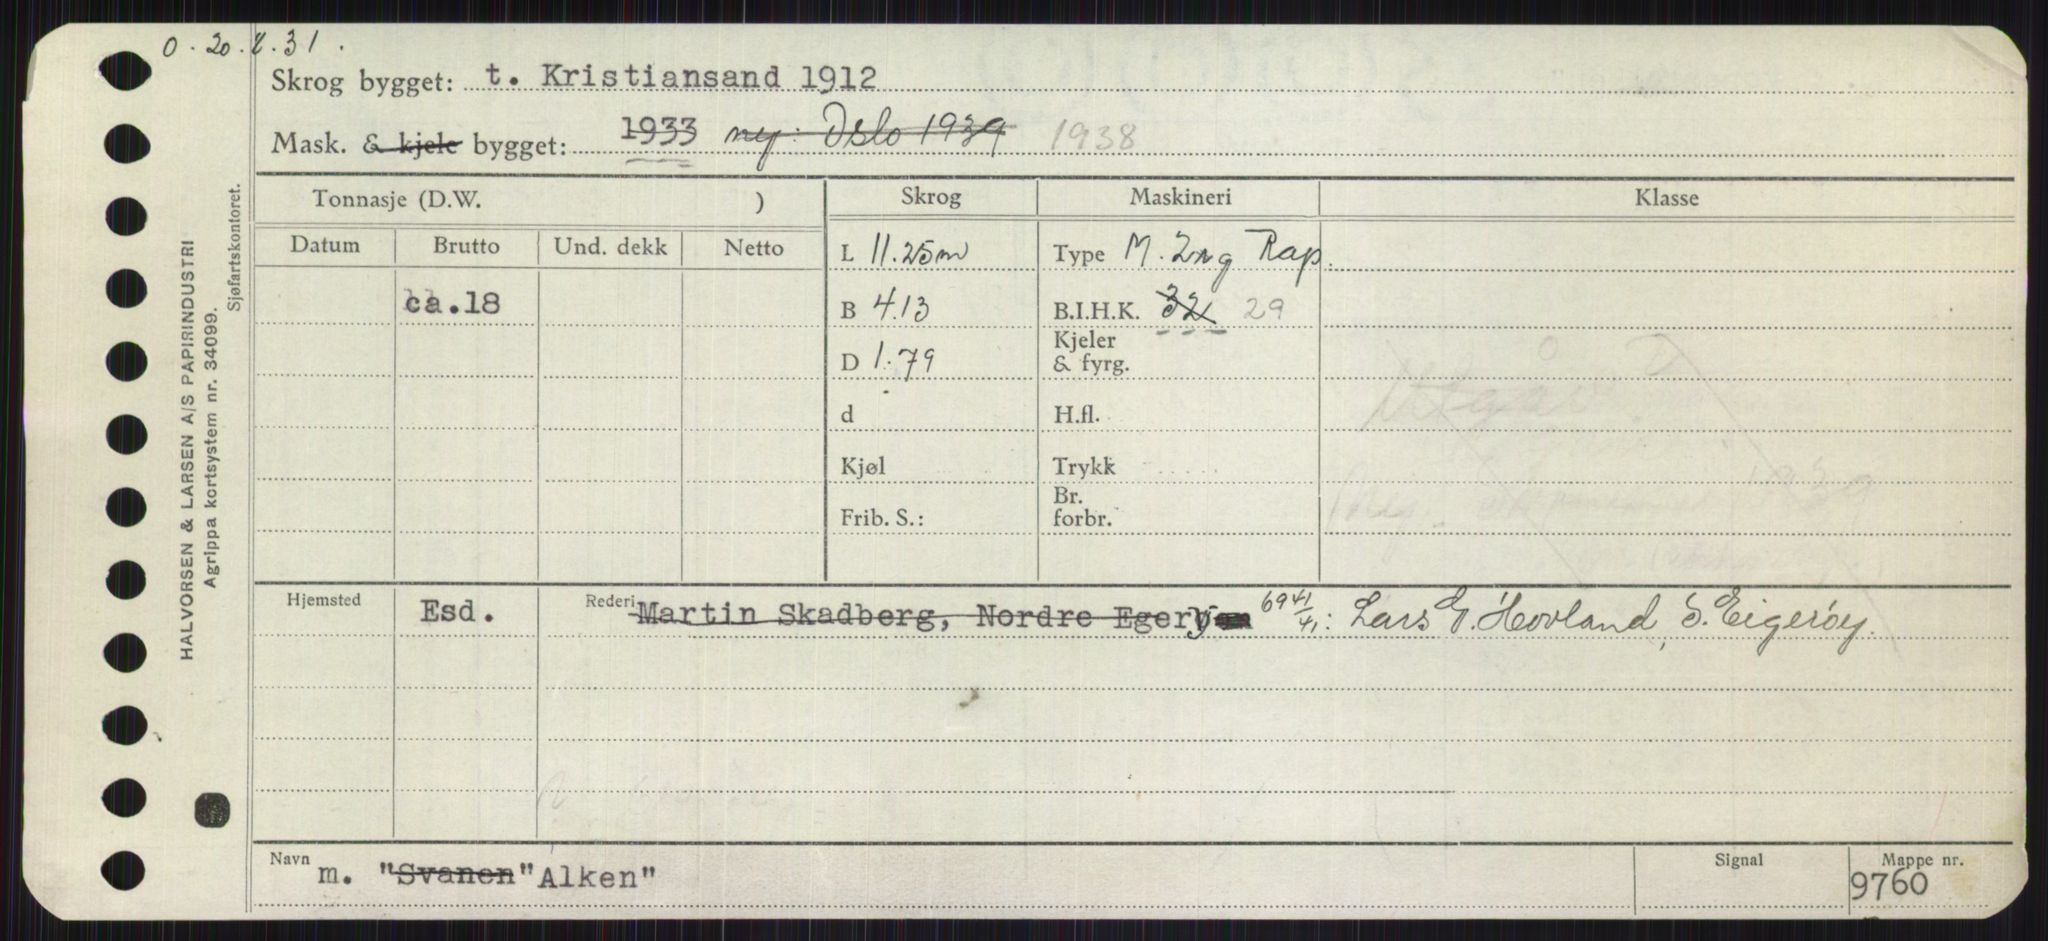 O. 20.8.31.
Skrog bygget: t. Kristiansand 1912
Mask. & kjele bygget: 1933 ny: Oslo 1939 1938
Tonnasje (D.W. ) Skrog Maskineri Klasse
Datum Brutto Und. dekk Netto
L 11.25m Type M. 2ng Rap.
ca.18 B 4.13 B.I.H.K. 32 29
D 1.79 Kjeler & fyrg.
d H.fl.
Kjøl Trykk
Frib. S.: Br. forbr.
1939
Hjemsted Esd. Rederi Martin Skadberg, Nordre Egerøy 69 41/41: Lars G. Hovland, S. Eigerøy.
Navn m. "Svanen" Alken" Signal Mappe nr. 9760
HALVORSEN & LARSEN A/S PAPIRINDUSTRI
Agrippa kortsystem nr. 34099.
Sjøfartskontoret.